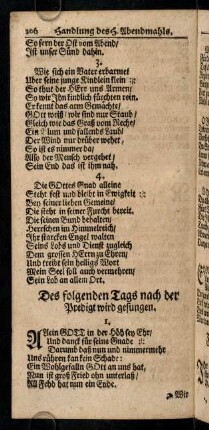 206 Handlung des H. Abendmahls.
So fern der Ost vom Abend/
Ist unser Sünd dahin.
3.
Wie sich ein Vater erbarmet
Uber seine junge Kindlein klein :/:
So thut der HErr uns Armen/
So wir Jhn kindlich fürchten rein.
Er kennt das arm Gemächte/
GOtt weiß/ wir sind nur Staub/
Gleich wie das Graß vom Rechen/
Ein Blum und fallends Laub/
Der Wind nur drüber wehet/
So ist es nimmer da/
Also der Mensch vergehet/
Sein End das ist ihm nah.
4.
Die GOttes Gnad alleine
Steht fest und bleibt in Ewigkeit :/:
Bey seiner lieben Gemeine/
Die steht in seiner Furcht bereit.
Die seinen Bund behalten/
Herrschen im Himmelreich/
Ihr starcken Engel walten
Seins Lobs und Dienst zugleich
Dem grossen HErrn zu Ehren/
Und treibt sein heiligs Wort
Mein Seel soll auch vermehren/
Sein Lob an allem Ort.
Des folgenden Tags nach der
Predigt wird gesungen.
1.
Allein GOTT in der Höh sey Ehr/
Und danck für seine Gnade :/:
Darumb daß nun und nimmermehr
Uns rühren kan kein Schade:
Ein Wohlgefalln GOtt an uns hat,
Nun ist groß Fried ohn unterlaß/
All Fehd hat nun ein Ende.
Wir